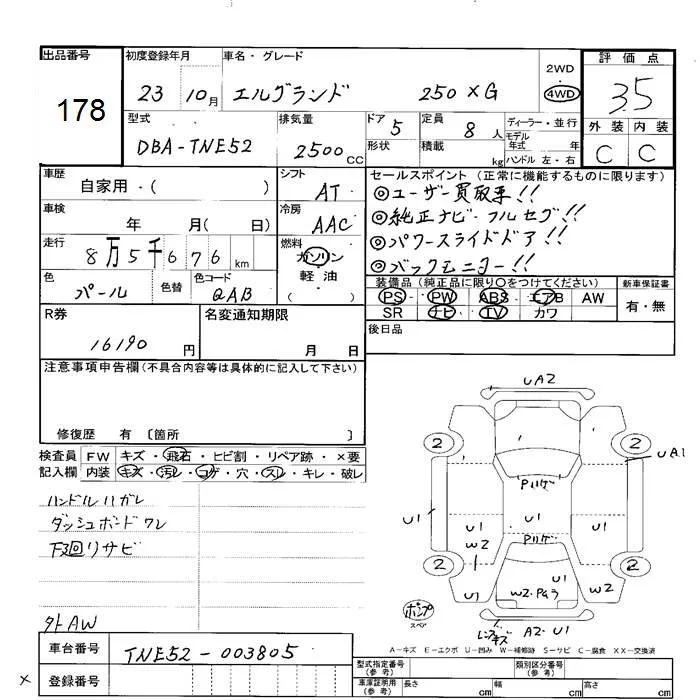 出品番号 初度登録年月 車名・グレード 2WD 評価点
178 23 10月 エルグランド 250 XG 4WD 3.5
型式 排気量 ドア 5 定員 8人 ディーラー・並行 外装 内装
DBA-TNE52 2500cc 形状 積載 kg モデル年式 年 C C
ハンドル 左・右
車歴 シフト セールスポイント(正常に機能するものに限ります)
自家用・( ) AT ◎ユーザー買取車!!
車検 冷房 ◎純正ナビ・フルセグ!!
年 月( 日) AAC ◎パワースライドドア!!
走行 燃料 ◎バックモニター!!
8万5千676km ガソリン
軽油
( )
色 色替 色コード 装備品(純正品に限り○をつけてください) 新車保証書
パール QAB PS・PW・ABS・エアB AW 有・無
SR ナビ・TV・カワ
R券 名変通知期限 後日品
16190円 月 日
注意事項申告欄(不具合内容等は具体的に記入して下さい)
修復歴 有 〔箇所 〕
検査員 FW キズ・飛石・ヒビ割・リペア跡・×要
記入欄 内装 キズ・汚レ・コゲ・穴・スリ・キレ・破レ
ハンドルハガレ
ダッシュボードワレ
下廻リサビ
外AW
UA2
2 2
UA1
Pハゲ
U1 U1 U1 U1
W2 Pハゲ
2 2
U1 U1 W2
ポンプ
スペア
レンズキズ A2・U1
A−キズ E−エクボ U−凹み W−補修跡 S−サビ C−腐食 XX−交換済
車台番号 TNE52-003805
× 登録番号
型式指定番号(参考) 類別区分番号(参考)
車庫証明用(参考) 長さ cm 幅 cm 高さ cm